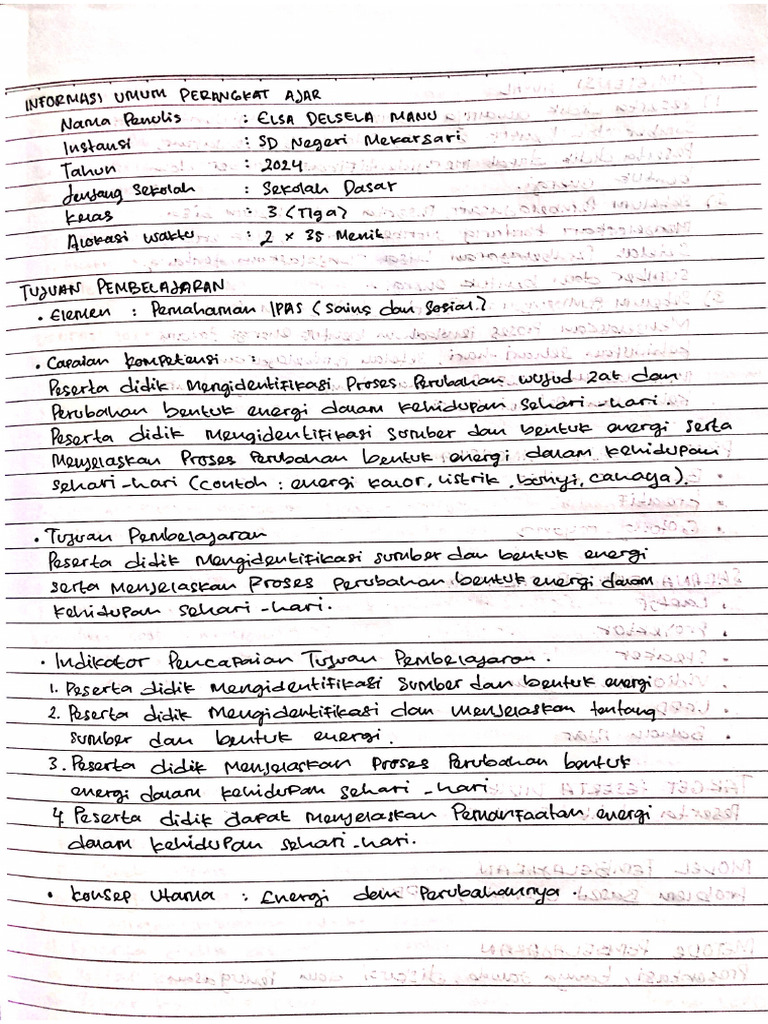 INFORMASI UMUM PERANGKAT AJAR
Nama Penulis : ELSA DELSELA MANU
Instansi : SD Negeri Mekarsari
Tahun : 2024
Jenjang Sekolah : Sekolah Dasar
Kelas : 3 (Tiga)
Alokasi Waktu : 2 x 35 Menit
TUJUAN PEMBELAJARAN
• Elemen : Pemahaman IPAS (Sains dan Sosial)
• Capaian Kompetensi :
Peserta didik mengidentifikasi Proses Perubahan wujud zat dan
Perubahan bentuk energi dalam kehidupan sehari-hari.
Peserta didik mengidentifikasi sumber dan bentuk energi serta
menjelaskan Proses Perubahan bentuk energi dalam kehidupan
sehari-hari (contoh : energi kalor, listrik, bunyi, cahaya).
• Tujuan Pembelajaran
Peserta didik mengidentifikasi sumber dan bentuk energi
serta menjelaskan Proses Perubahan bentuk energi dalam
kehidupan sehari-hari.
• Indikator Pencapaian Tujuan Pembelajaran.
1. Peserta didik mengidentifikasi sumber dan bentuk energi
2. Peserta didik mengidentifikasi dan menjelaskan tentang
sumber dan bentuk energi.
3. Peserta didik menjelaskan Proses Perubahan bentuk
energi dalam kehidupan sehari-hari
4. Peserta didik dapat menjelaskan Pemanfaatan energi
dalam kehidupan sehari-hari.
• Konsep Utama : Energi dan Perubahannya.